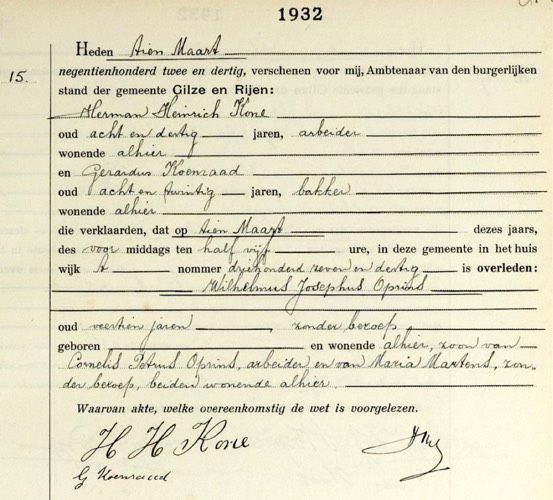 1932
Heden tien Maart
15. negentienhonderd twee en dertig, verschenen voor mij, Ambtenaar van den burgerlijken
stand der gemeente Gilze en Rijen:
Herman Heinrich Kone
oud acht en dertig jaren, arbeider
wonende alhier
en Gerardus Koenraad
oud acht en twintig jaren, bakker
wonende alhier
die verklaarden, dat op tien Maart dezes jaars,
des voor middags ten half vijf ure, in deze gemeente in het huis
wijk A nommer driehonderd zeven en dertig is overleden:
Wilhelmus Josephus Oprins
oud veertien jaren, zonder beroep,
geboren en wonende alhier, zoon van
Cornelis Petrus Oprins, arbeider en van Maria Martens, zon-
der beroep, beiden wonende alhier.
Waarvan akte, welke overeenkomstig de wet is voorgelezen.
H H Kone
G Koenraad